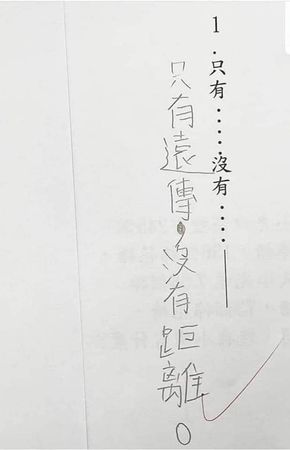 1.只有……沒有……
只有遠傳,沒有距離。